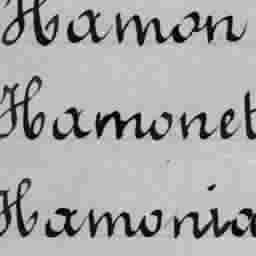 Hamon
Hamonet
Hamonia